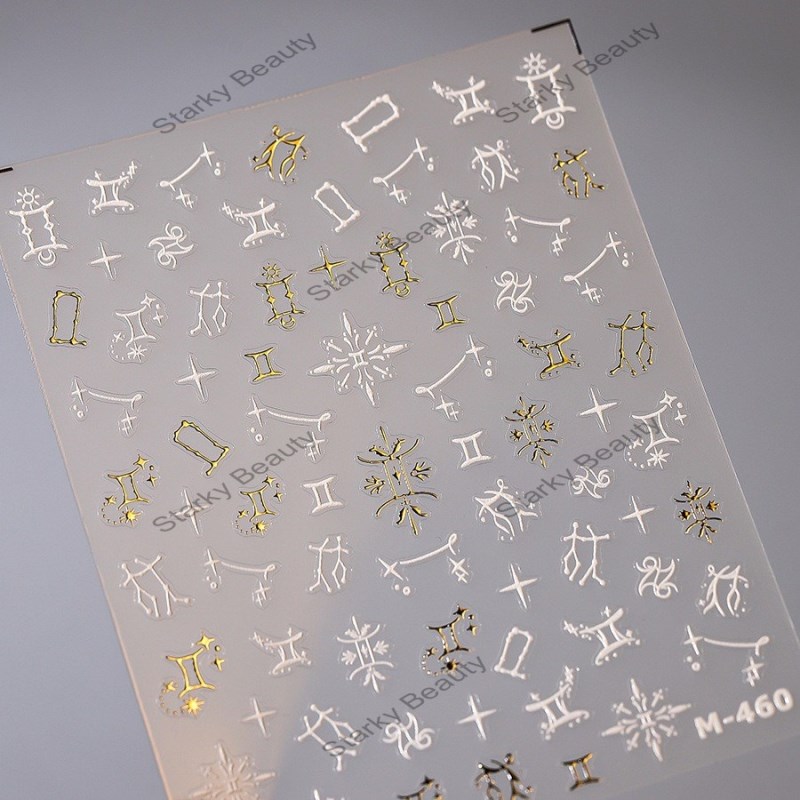 Starky Beauty
Starky Beauty
Starky Beauty
Starky Beauty
Starky Beauty
Starky Beauty
M-460